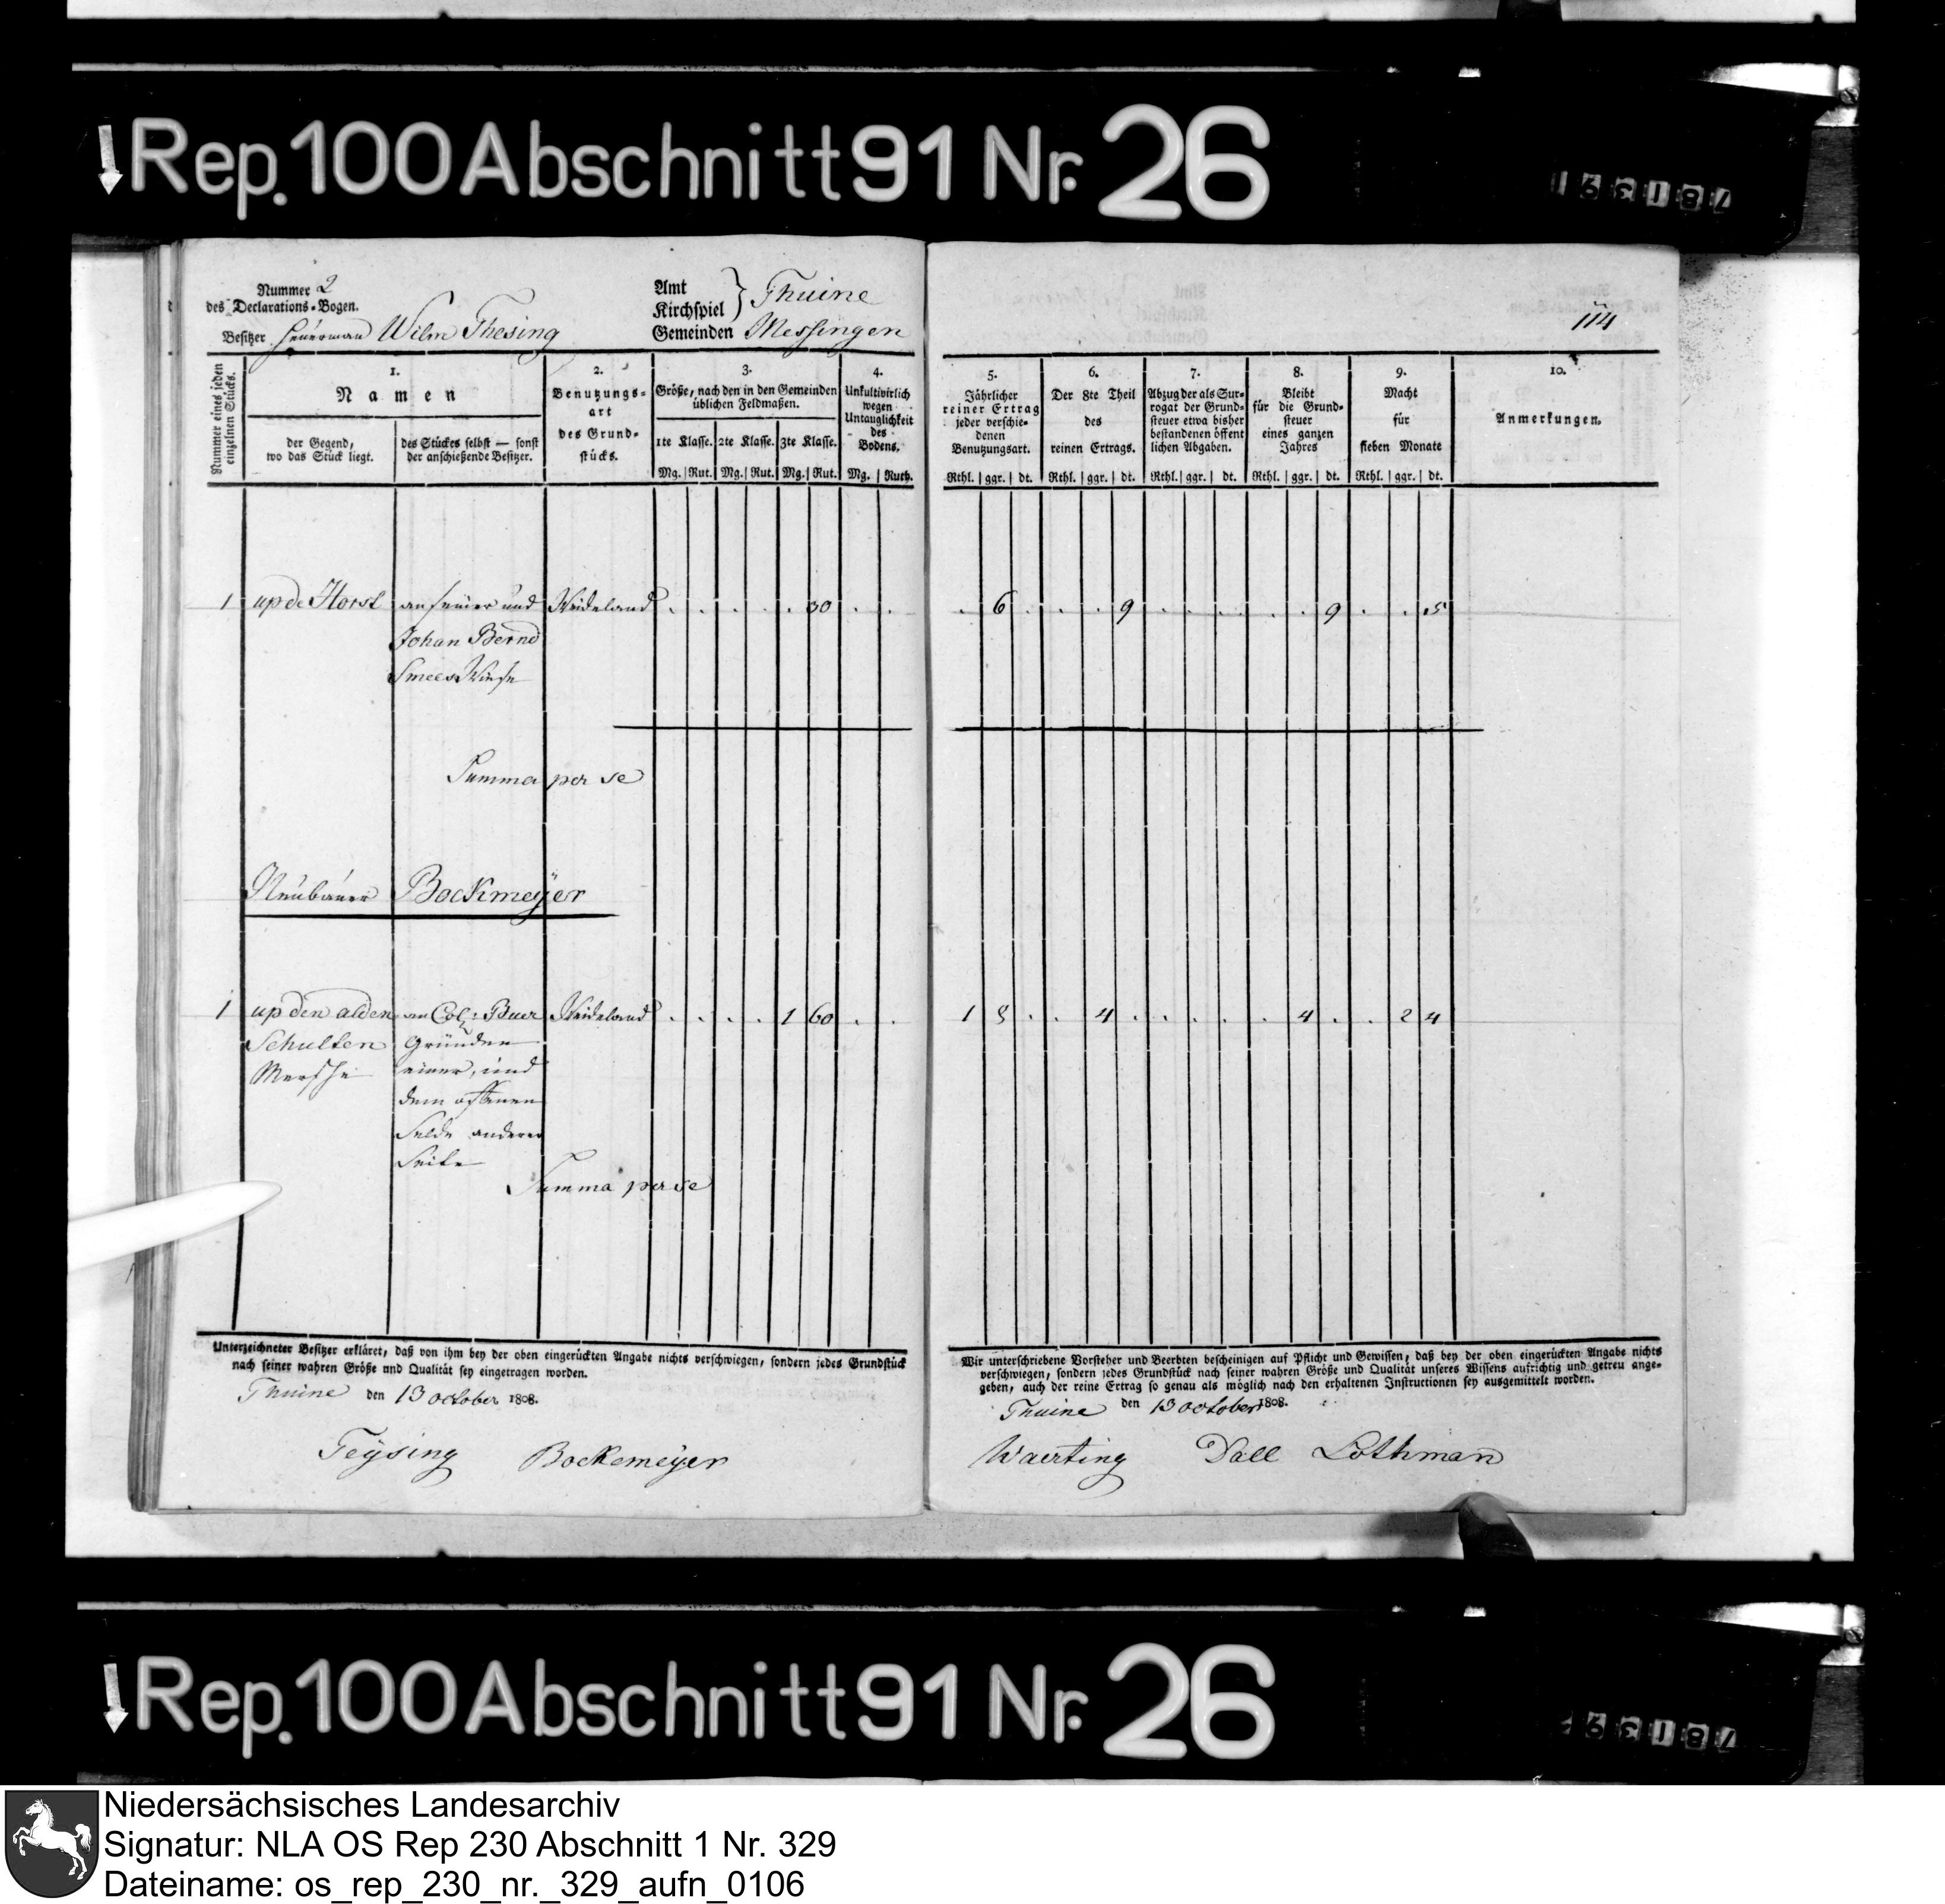 Rep. 100 Abschnitt 91 Nr. 26
78 1391
Nummer 2
des Declarations-Bogen.
Besitzer Heuerman Wilm Thesing
Amt
Kirchspiel } Thuine
Gemeinden Messingen
114
Nummer eines jeden einzelnen Stücks.
1.
Namen
der Gegend,
wo das Stück liegt.
des Stückes selbst — sonst
der anschießende Besitzer.
2.
Benutzungs-
art
des Grund-
stücks.
3.
Größe, nach den in den Gemeinden
üblichen Feldmaßen.
1te Klasse. 2te Klasse. 3te Klasse.
Mg. Rut. Mg. Rut. Mg. Rut.
4.
Unkultivirlich
wegen
Untauglichkeit
des
Bodens.
Mg. Ruth.
5.
Jährlicher
reiner Ertrag
jeder verschie-
denen
Benutzungsart.
Rthl. ggr. dt.
6.
Der 8te Theil
des
reinen Ertrags.
Rthl. ggr. dt.
7.
Abzug der als Sur-
rogat der Grund-
steuer etwa bisher
bestandenen öffent
lichen Abgaben.
Rthl. ggr. dt.
8.
Bleibt
für die Grund-
steuer
eines ganzen
Jahres
Rthl. ggr. dt.
9.
Macht
für
sieben Monate
Rthl. ggr. dt.
10.
Anmerkungen.
1 up de Horst an seiner und Weideland . . . . . 30 . . . 6 . . . 9 . . . . . 9 . . 5
Johan Bernd
Smees Wiese
Summa per se
Neubauer Bockmeyer
1 up den alden an Col: Buer Weideland . . . . 1 60 . . 1 8 . . 4 . . . . . 4 . . 2 4
Schulten Gründen
Mersche einer, und
dem offenen
Felde anderer
Seite
Summa per se
Unterzeichneter Besitzer erkläret, daß von ihm bey der oben eingerückten Angabe nichts verschwiegen, sondern jedes Grundstück
nach seiner wahren Größe und Qualität sey eingetragen worden.
Thuine den 13 october 1808.
Teysing Bockemeyer
Wir unterschriebene Vorsteher und Beerbten bescheinigen auf Pflicht und Gewissen, daß bey der oben eingerückten Angabe nichts
verschwiegen, sondern jedes Grundstück nach seiner wahren Größe und Qualität unseres Wissens aufrichtig und getreu ange-
geben, auch der reine Ertrag so genau als möglich nach den erhaltenen Instructionen sey ausgemittelt worden.
Thuine den 13 october 1808.
Waerting Dall Lothman
Rep. 100 Abschnitt 91 Nr. 26
Niedersächsisches Landesarchiv
Signatur: NLA OS Rep 230 Abschnitt 1 Nr. 329
Dateiname: os_rep_230_nr._329_aufn_0106